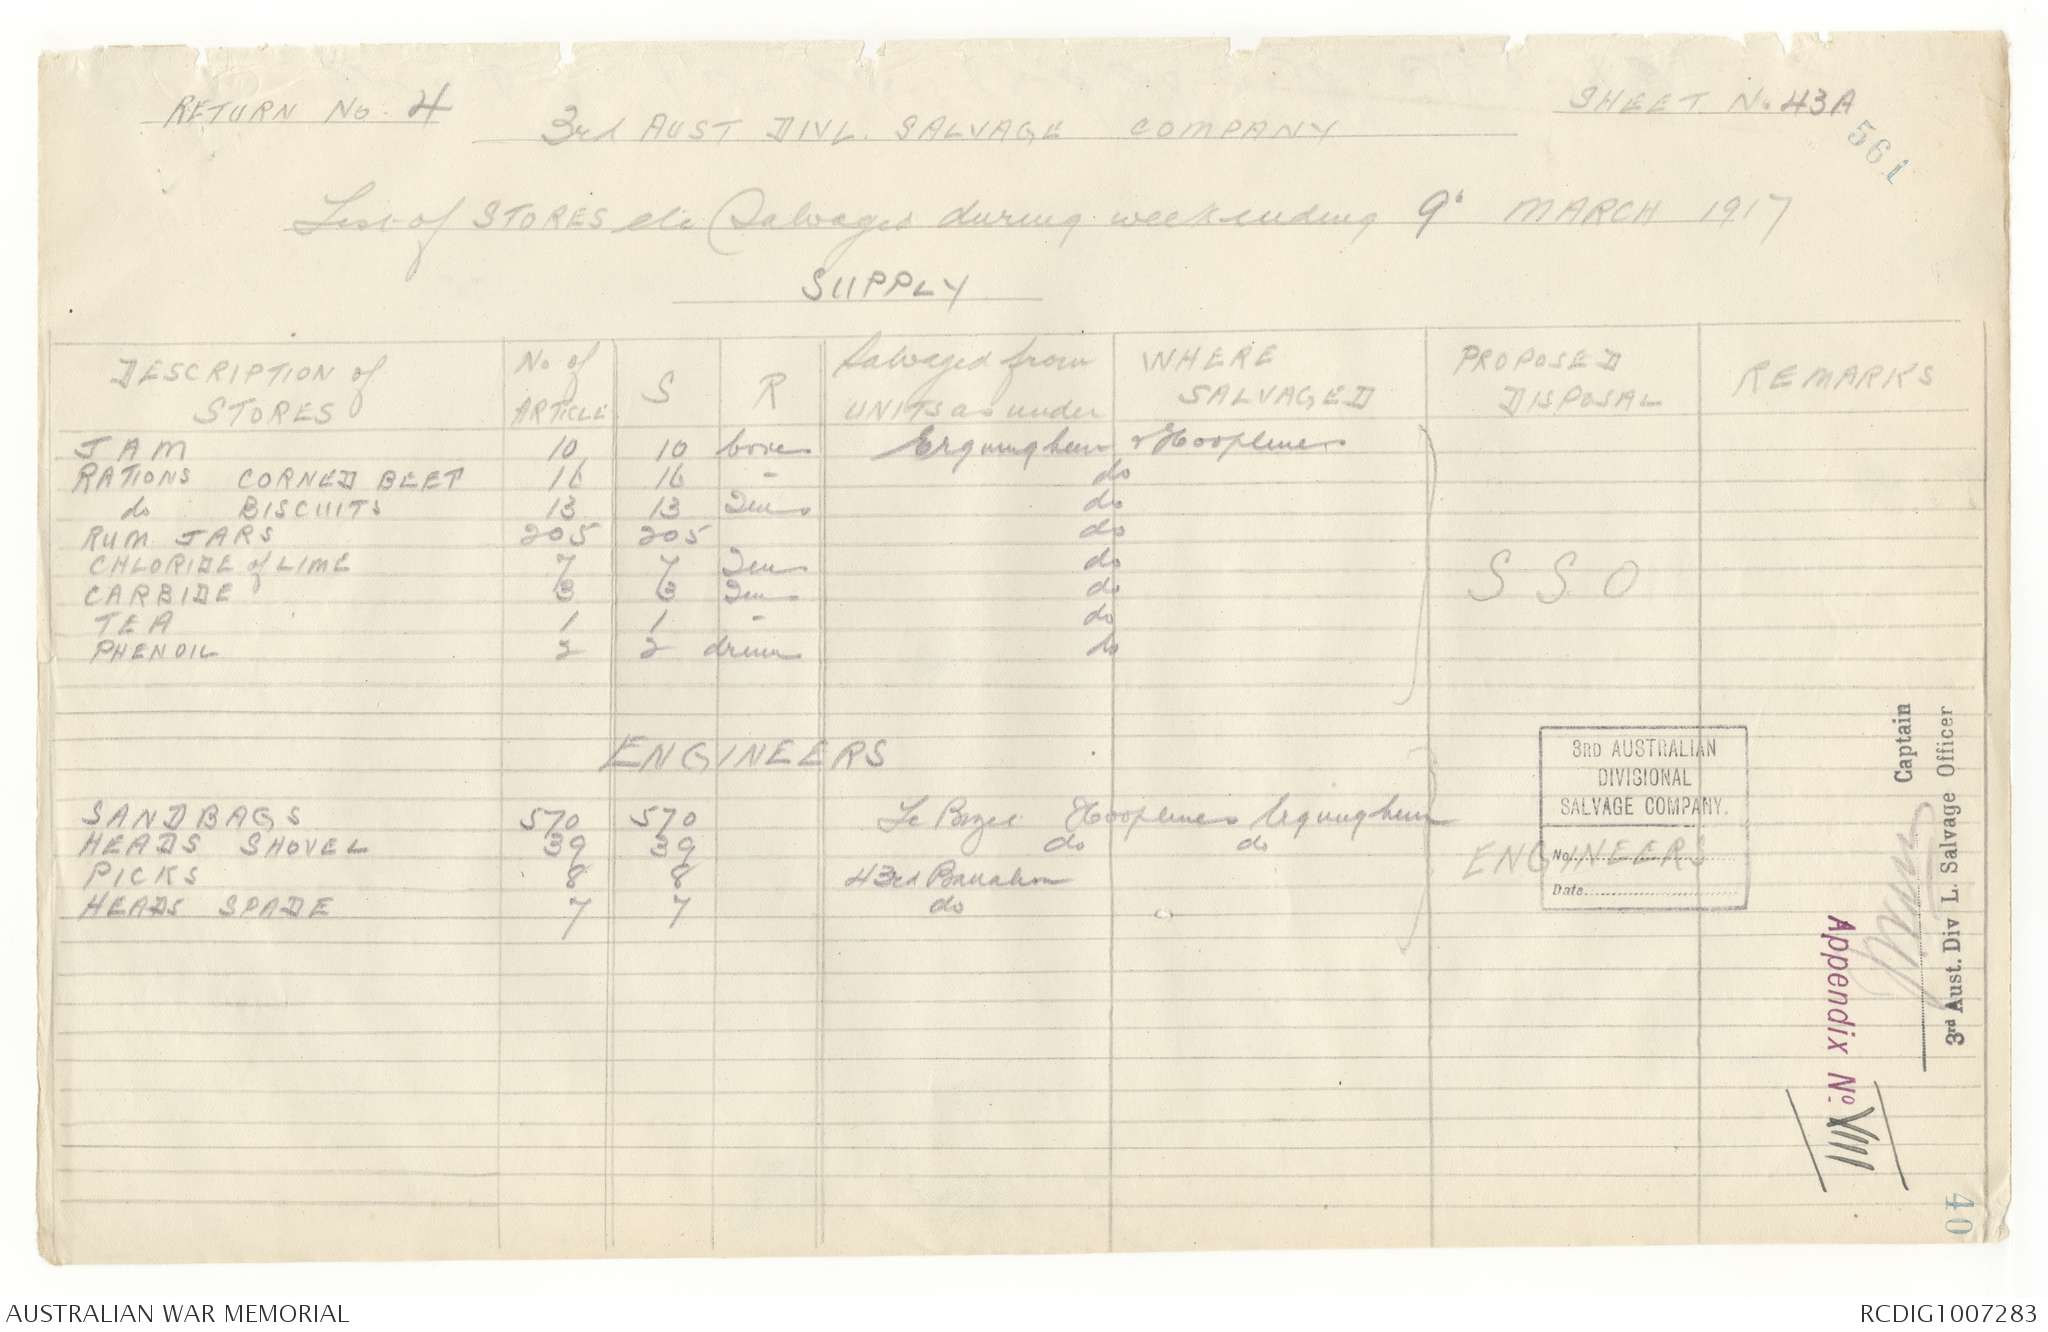 RETURN No. 4
SHEET No 43A
561
3rd AUST DIVL. SALVAGE COMPANY
List of STORES etc Salvaged during week ending 9th MARCH 1917
SUPPLY
DESCRIPTION of STORES | No of ARTICLE | S | R | Salvaged from UNITS as under | WHERE SALVAGED | PROPOSED DISPOSAL | REMARKS
JAM 10 10 boxes Erquinghem & Hooplines
RATIONS CORNED BEEF 16 16 - do
do BISCUITS 13 13 Tins do
RUM JARS 205 205 do
CHLORIDE of LIME 7 7 Tins do
CARBIDE 3 3 Tins do
TEA 1 1 - do
PHENOIL 2 2 drums do
S S O
ENGINEERS
SANDBAGS 570 570 Le Bizet Hooplines Erquinghem
HEADS SHOVEL 39 39 do do
PICKS 8 8 43rd Battalion
HEADS SPADE 7 7 do
ENGINEERS
3RD AUSTRALIAN
DIVISIONAL
SALVAGE COMPANY.
No.
Date
Captain
3rd Aust. Div L. Salvage Officer
Appendix No. VIII
40
AUSTRALIAN WAR MEMORIAL
RCDIG1007283